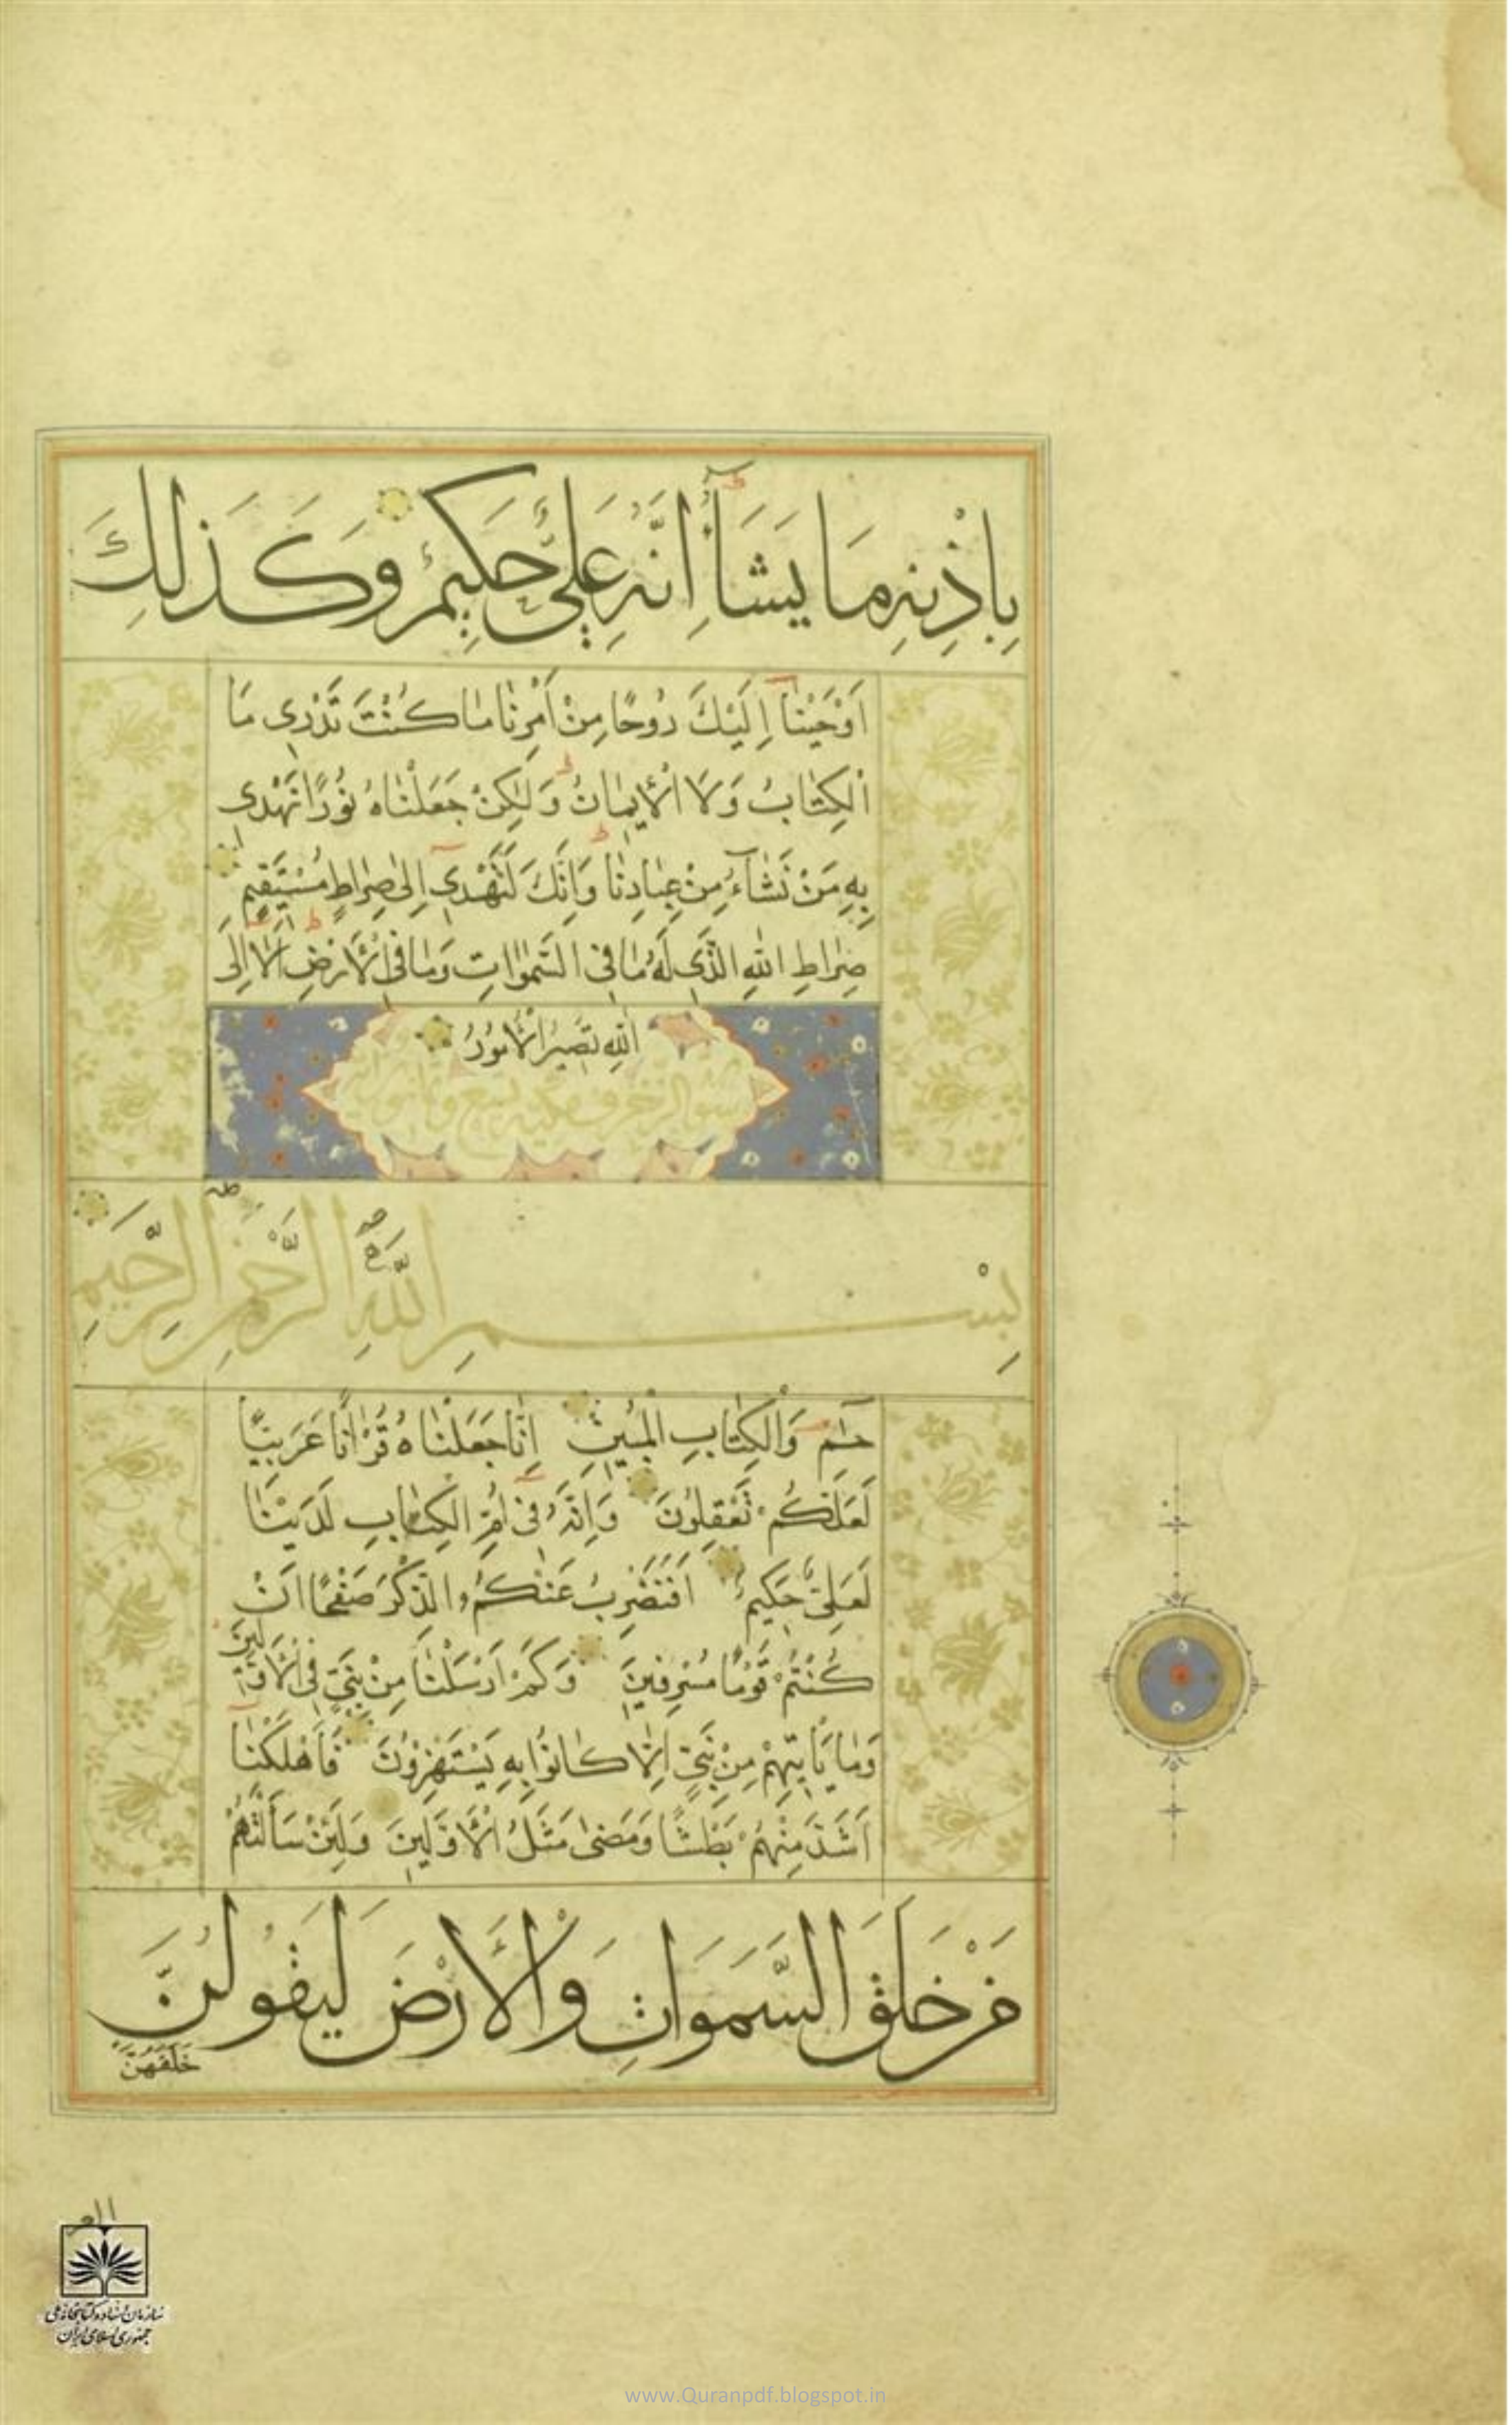 بِاِذْنِهِ مَا يَشَآءُ اِنَّهُ عَلِيٌّ حَكِيمٌ وَكَذلِكَ
اَوْحَيْنٰا اِلَيْكَ رُوحًا مِنْ اَمْرِنٰا مٰا كُنْتَ تَدْرِي مَا
الْكِتٰابُ وَلَا الْاِيمٰانُ وَلٰكِنْ جَعَلْنٰاهُ نُورًا نَهْدِي
بِهِ مَنْ نَشٰآءُ مِنْ عِبٰادِنٰا وَاِنَّكَ لَتَهْدِي اِلىٰ صِرٰاطٍ مُسْتَقِيمٍ
صِرٰاطِ اللهِ الَّذِي لَهُ مٰا فِي السَّمٰوٰاتِ وَمٰا فِي الْاَرْضِ اَلٰا اِلَى
اللهِ تَصِيرُ الْاُمُورُ
سورة الزخرف مكية تسع وثمانون آية
بِسْمِ اللَّهِ الرَّحْمٰنِ الرَّحِيمِ
حٰمٓ وَالْكِتٰابِ الْمُبِينِ اِنّٰا جَعَلْنٰاهُ قُرْاٰنًا عَرَبِيًّا
لَعَلَّكُمْ تَعْقِلُونَ وَاِنَّهُ فِي اُمِّ الْكِتٰابِ لَدَيْنٰا
لَعَلِيٌّ حَكِيمٌ اَفَنَضْرِبُ عَنْكُمُ الذِّكْرَ صَفْحًا اَنْ
كُنْتُمْ قَوْمًا مُسْرِفِينَ وَكَمْ اَرْسَلْنٰا مِنْ نَبِيٍّ فِي الْاَوَّلِينَ
وَمٰا يَاْتِيهِمْ مِنْ نَبِيٍّ اِلّٰا كٰانُوا بِهِ يَسْتَهْزِؤُنَ فَاَهْلَكْنٰا
اَشَدَّ مِنْهُمْ بَطْشًا وَمَضىٰ مَثَلُ الْاَوَّلِينَ وَلَئِنْ سَاَلْتَهُمْ
مَنْ خَلَقَ السَّمَوَاتِ وَالْاَرْضَ لَيَقُولُنَّ
خَلَقَهُنَّ
سازمان اسناد و کتابخانه ملی
جمهوری اسلامی ایران
www.Quranpdf.blogspot.in